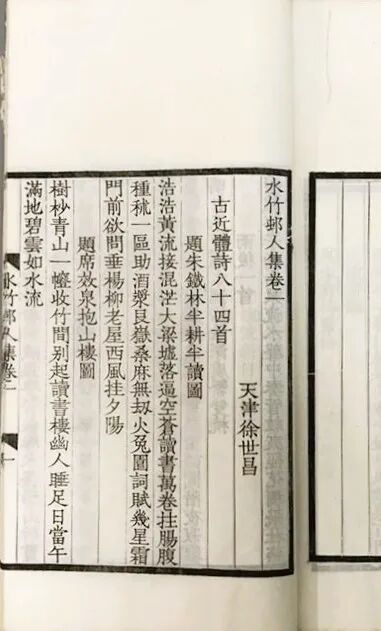 水竹邨人集卷一
天津徐世昌
古近體詩八十四首
題朱鐵林半耕半讀圖
浩浩黃流接混茫大梁墟落逼空蒼讀書萬卷拄腸腹
種秫一區助酒漿艮嶽桑麻無刧火兔園詞賦幾星霜
門前欲問垂楊柳老屋西風挂夕陽
題席效泉抱山樓圖
樹杪青山一㡧收竹間别起讀書樓幽人睡足日當午
滿地碧雲如水流
水竹邨人集卷一
一